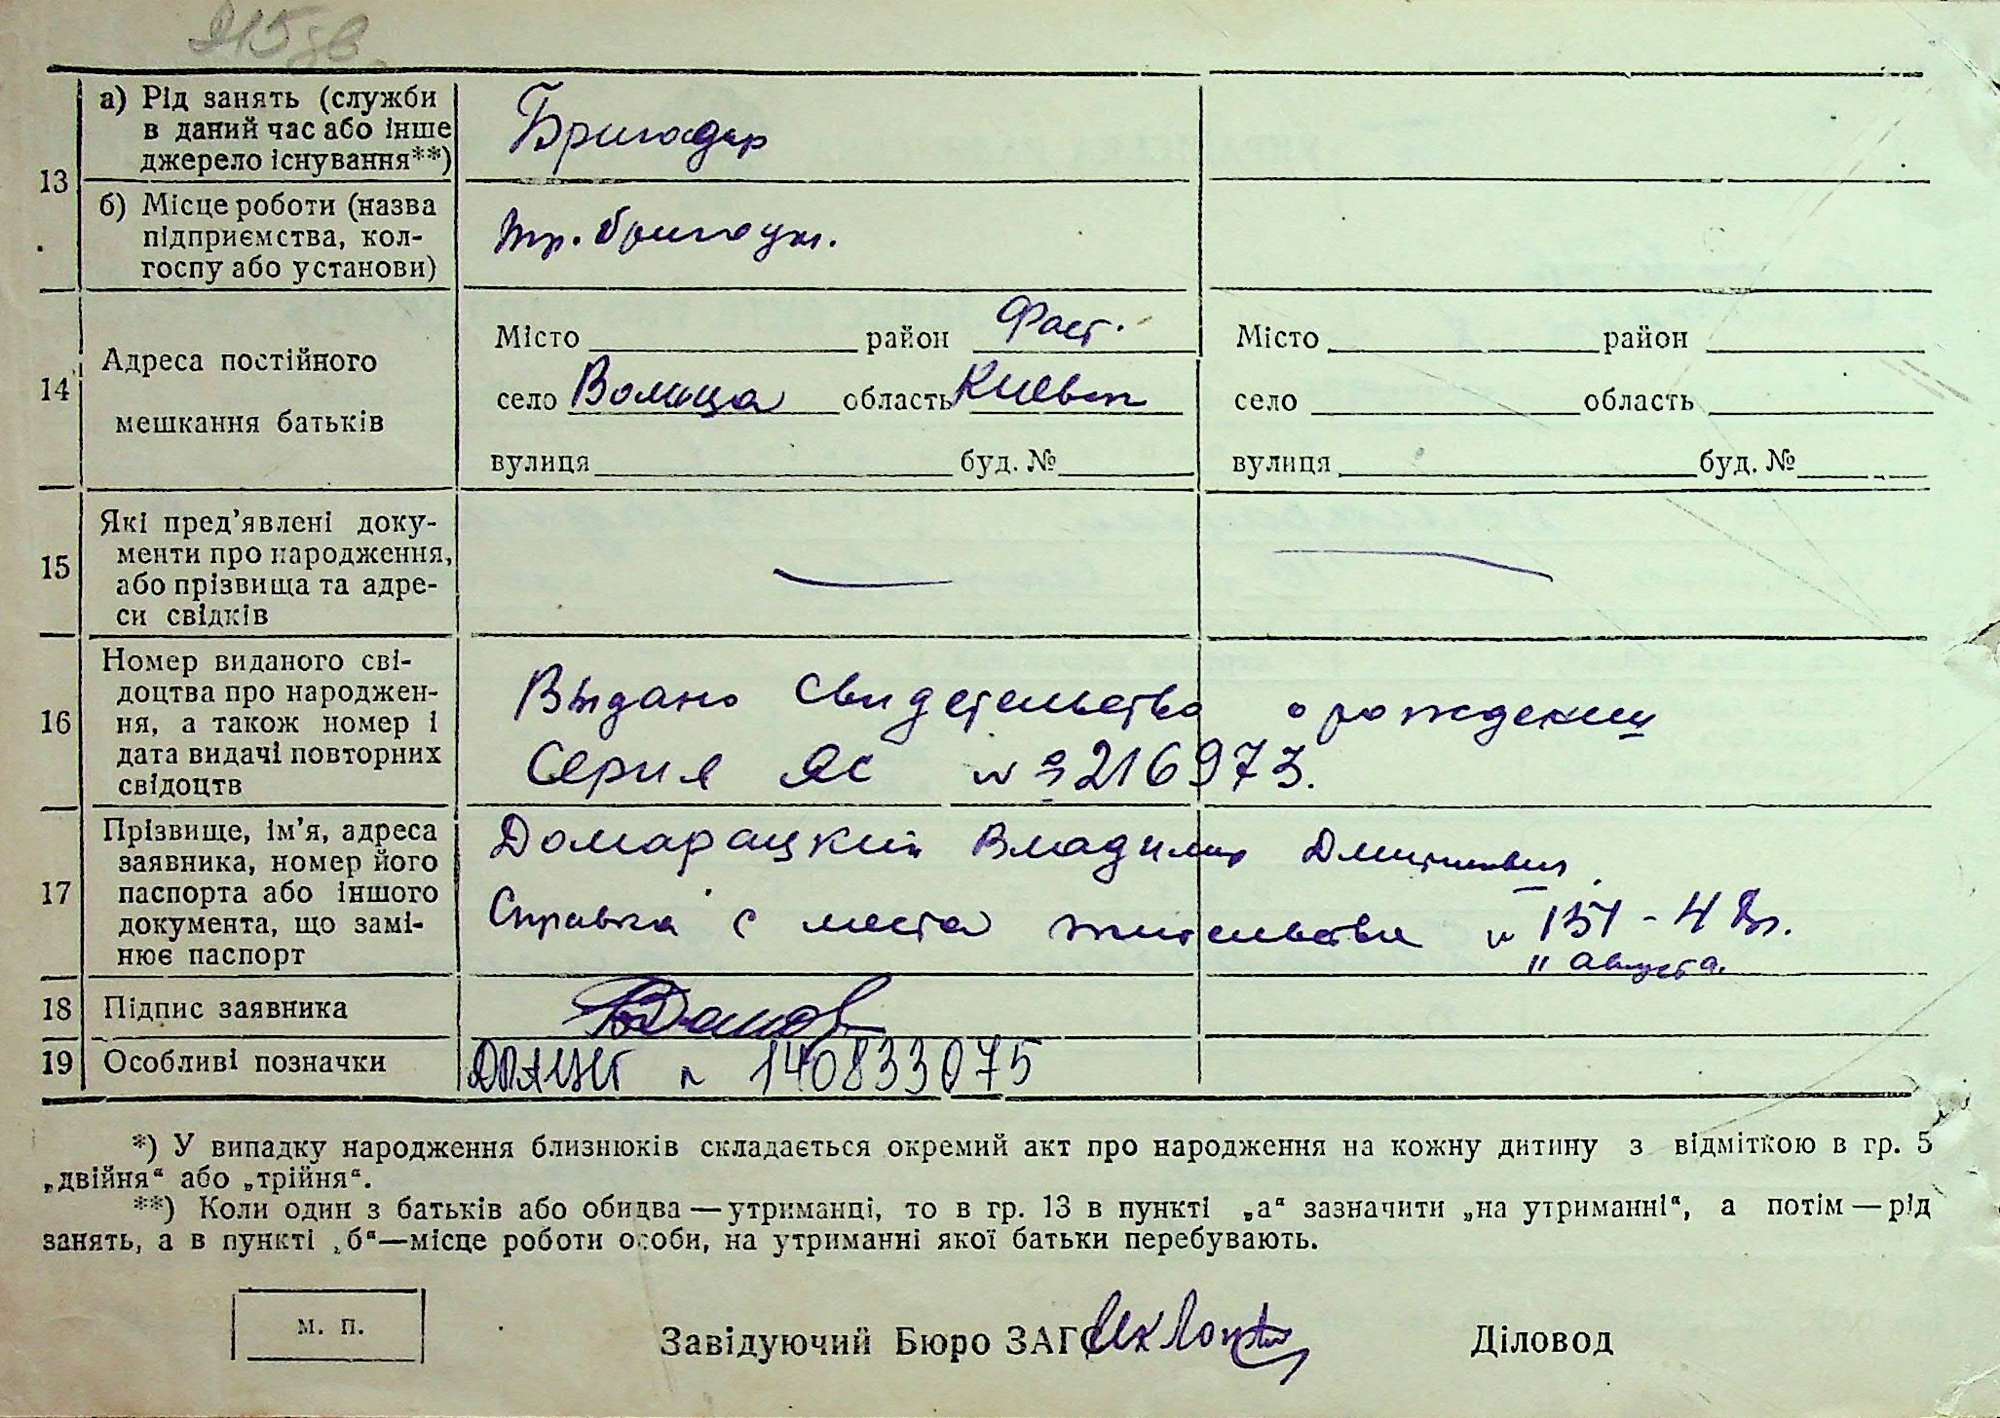 215зв.
13
а) Рід занять (служби
в даний час або інше
джерело існування**)
Бригадир
б) Місце роботи (назва
підприємства, кол-
госпу або установи)
тр. бригади.
14
Адреса постійного
мешкання батьків
Місто район Фаст. Місто район
село Волица область Киевск село область
вулиця буд. № вулиця буд. №
15
Які пред’явлені доку-
менти про народження,
або прізвища та адре-
си свідків
16
Номер виданого сві-
доцтва про народжен-
ня, а також номер і
дата видачі повторних
свідоцтв
Выдано свидетельство о рождении
Серия ЯС № 3216973.
17
Прізвище, ім’я, адреса
заявника, номер його
паспорта або іншого
документа, що замі-
нює паспорт
Домарацкий Владимир Дмитриевич
Справка с места жительства №
11 августа.
18 Підпис заявника
19 Особливі позначки
ДРАЦСГ № 140833075
*) У випадку народження близнюків складається окремий акт про народження на кожну дитину з відміткою в гр. 5
„двійня“ або „трійня“.
**) Коли один з батьків або обидва — утриманці, то в гр. 13 в пункті „а“ зазначити „на утриманні“, а потім — рід
занять, а в пункті „б“—місце роботи особи, на утриманні якої батьки перебувають.
м. п.
Завідуючий Бюро ЗАГС Діловод